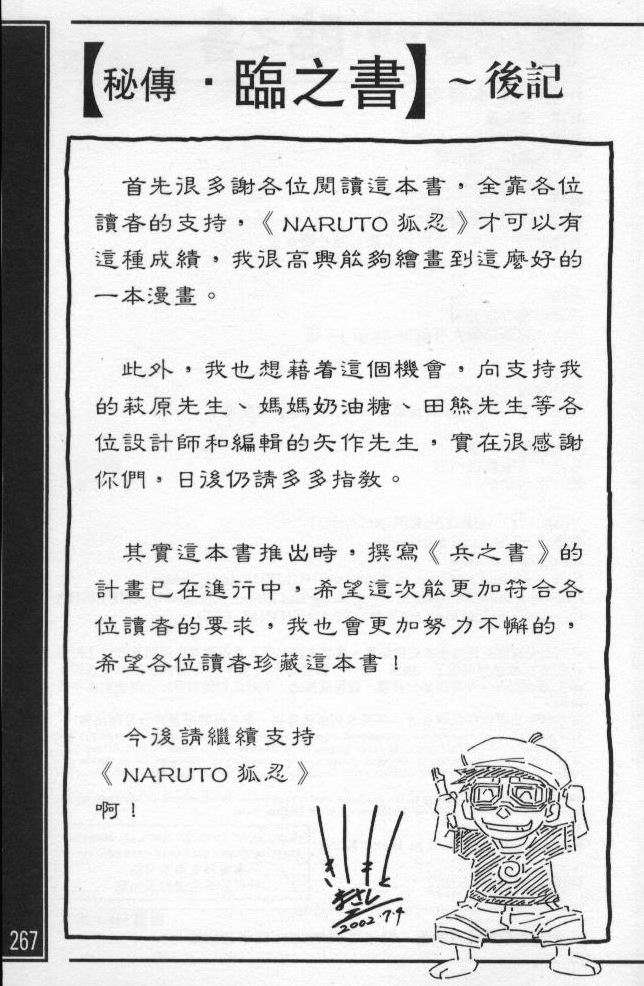 【秘傳·臨之書】~後記
首先很多謝各位閱讀這本書，全靠各位
讀者的支持，《NARUTO狐忍》才可以有
這種成績，我很高興能夠繪畫到這麼好的
一本漫畫。
此外，我也想藉着這個機會，向支持我
的萩原先生、媽媽奶油糖、田熊先生等各
位設計師和編輯的矢作先生，實在很感謝
你們，日後仍請多多指教。
其實這本書推出時，撰寫《兵之書》的
計畫已在進行中，希望這次能更加符合各
位讀者的要求，我也會更加努力不懈的，
希望各位讀者珍藏這本書！
今後請繼續支持
《NARUTO狐忍》
啊！
きしもと
まさし
2002.7.4
267